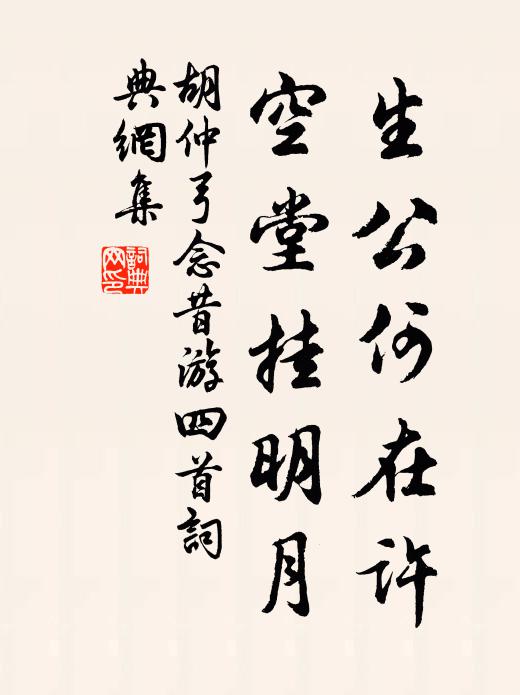 生公何在许
空堂挂明月
胡仲弓念昔游四首詞
典網集
詞典
网印